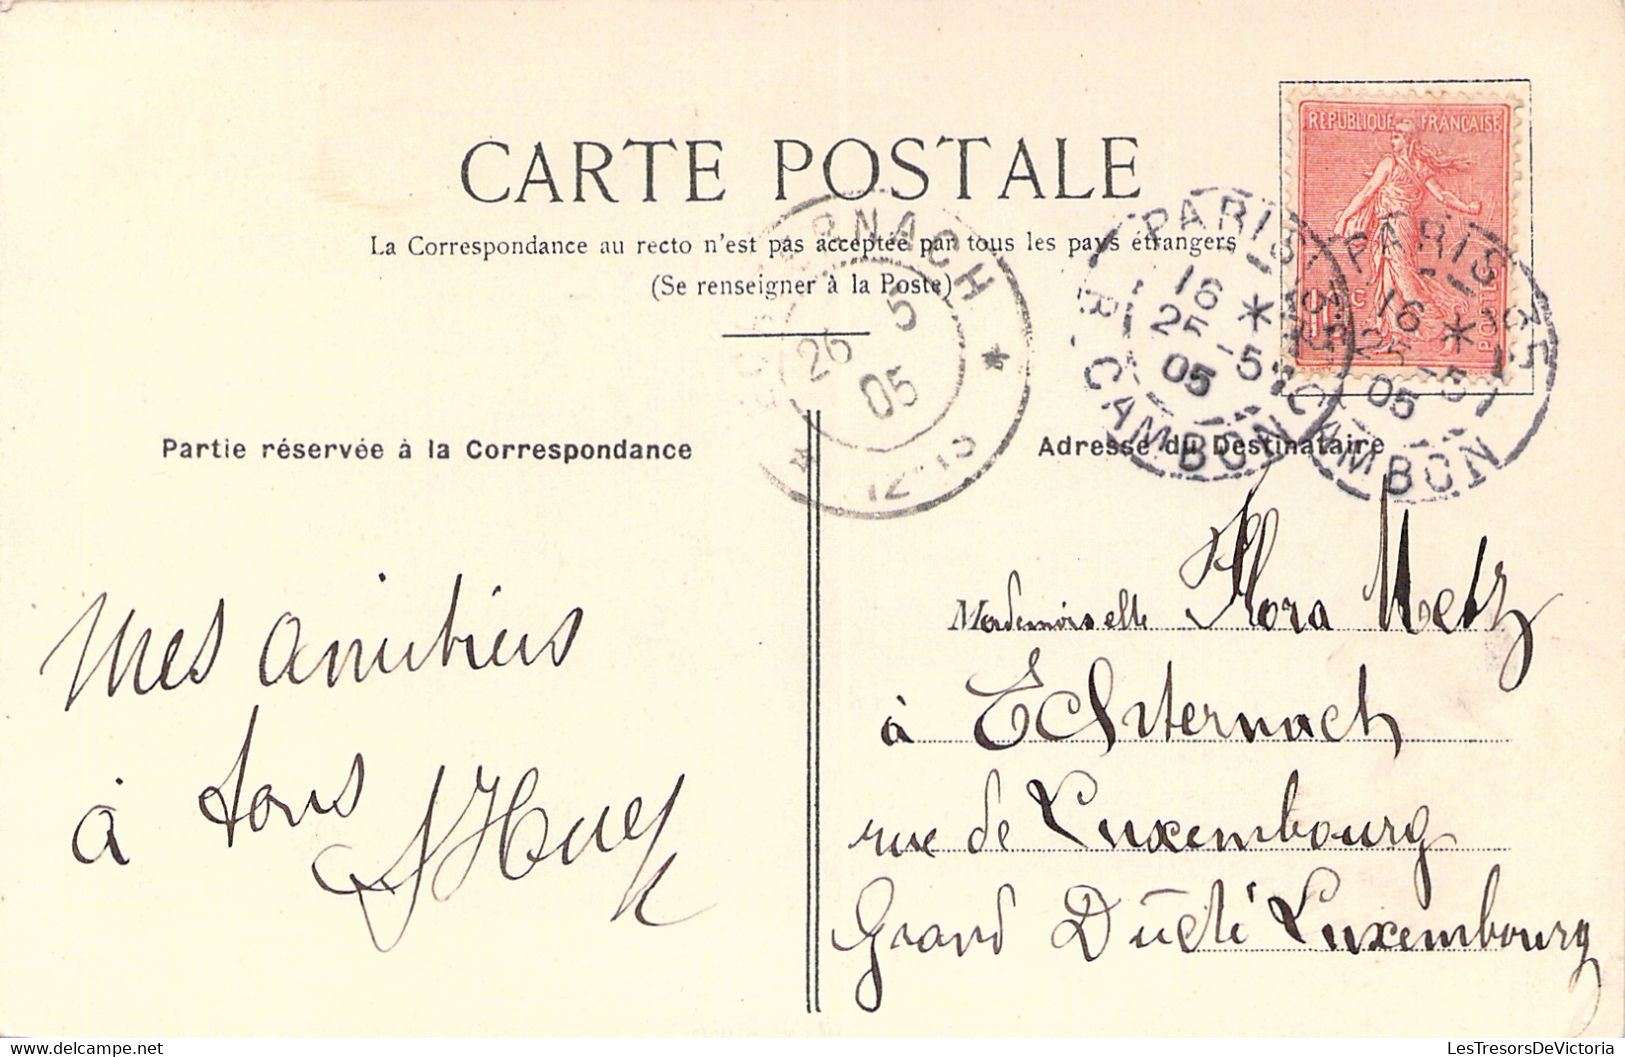 CARTE POSTALE
La Correspondance au recto n'est pas acceptée par tous les pays étrangers
(Se renseigner à la Poste)
REPUBLIQUE FRANCAISE
10 c
POSTES
PARIS
16 *
25 -5
05
R. CAMBON
PARIS 35
16 *
25 -5
05
R. CAMBON
ECHTERNACH
26 5
05
* 12-13 *
Partie réservée à la Correspondance
Adresse du Destinataire
Mes amitiés
à tous
Mademoiselle Flora Metz
à Echternach
rue de Luxembourg
Grand Duché Luxembourg
LesTresorsDeVictoria
LesTresorsDeVictoria.com